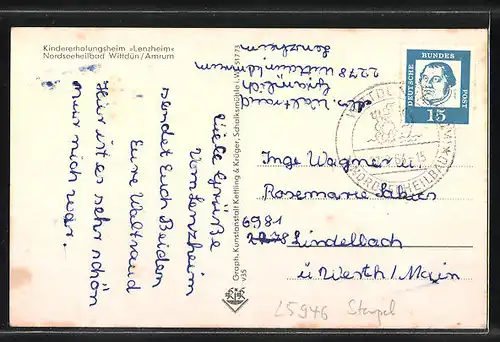 Kindererholungsheim »Lenzheim«
Nordseeheilbad Wittdün/Amrum
Viele Grüße
Vom Lenzheim
sendet Euch Beiden
Eure Waltraud
Hier ist es sehr schön
nur nich
abs. Waltraud
2278 Wittdün
Lenzheim
Graph. Kunstanstalt Kettling & Krüger, Schalksmühle i. W. 51773
V35
KK
DEUTSCHE BUNDES POST
15
NORDSEEHEILBAD
Inge Wagner u.
Rosemarie
6981
2278 Lindelbach
ü. Werth/Main
L5946 Stempel